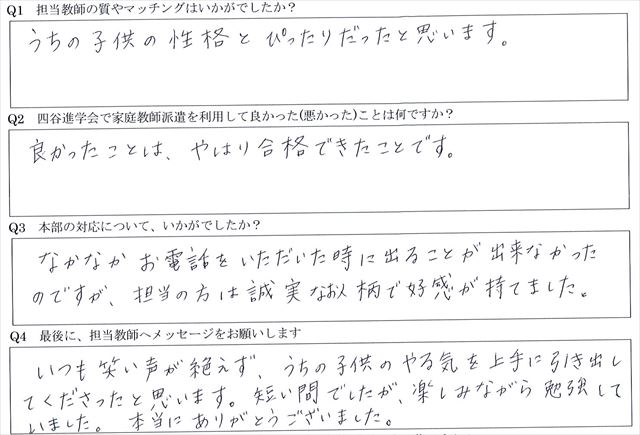 Q1 担当教師の質やマッチングはいかがでしたか？
うちの子供の性格とぴったりだったと思います。
Q2 四谷進学会で家庭教師派遣を利用して良かった(悪かった)ことは何ですか？
良かったことは、やはり合格できたことです。
Q3 本部の対応について、いかがでしたか？
なかなかお電話をいただいた時に出ることが出来なかった
のですが、担当の方は誠実なお人柄で好感が持てました。
Q4 最後に、担当教師へメッセージをお願いします
いつも笑い声が絶えず、うちの子供のやる気を上手に引き出し
てくださったと思います。短い間でしたが、楽しみながら勉強して
いました。本当にありがとうございました。